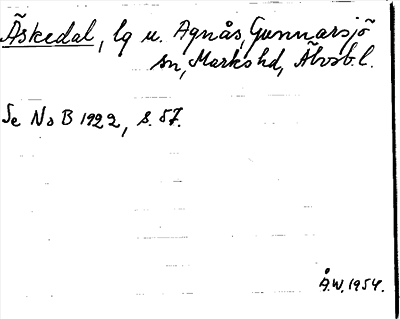 Äskedal, lg u. Agnås, Gunnarsjö
sn, Markshd, Älvsb.l.
Se NoB 1922, s. 57.
Å.W. 1954.